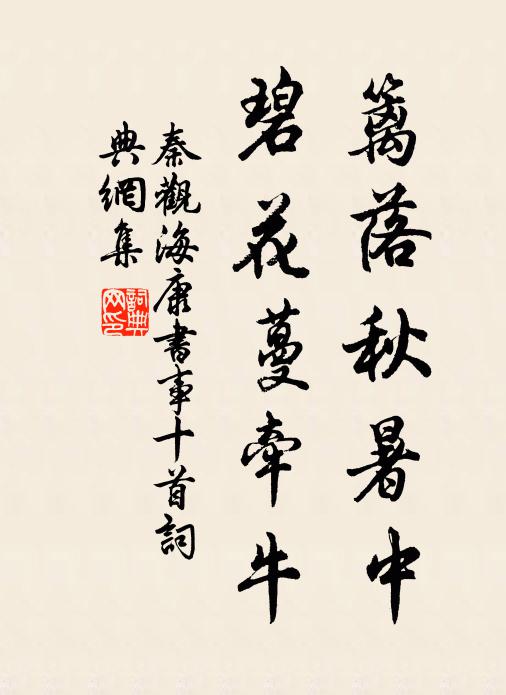 籬落秋暑中
碧花蔓牽牛
秦觀海康書事十首詞
典網集
詞典網印